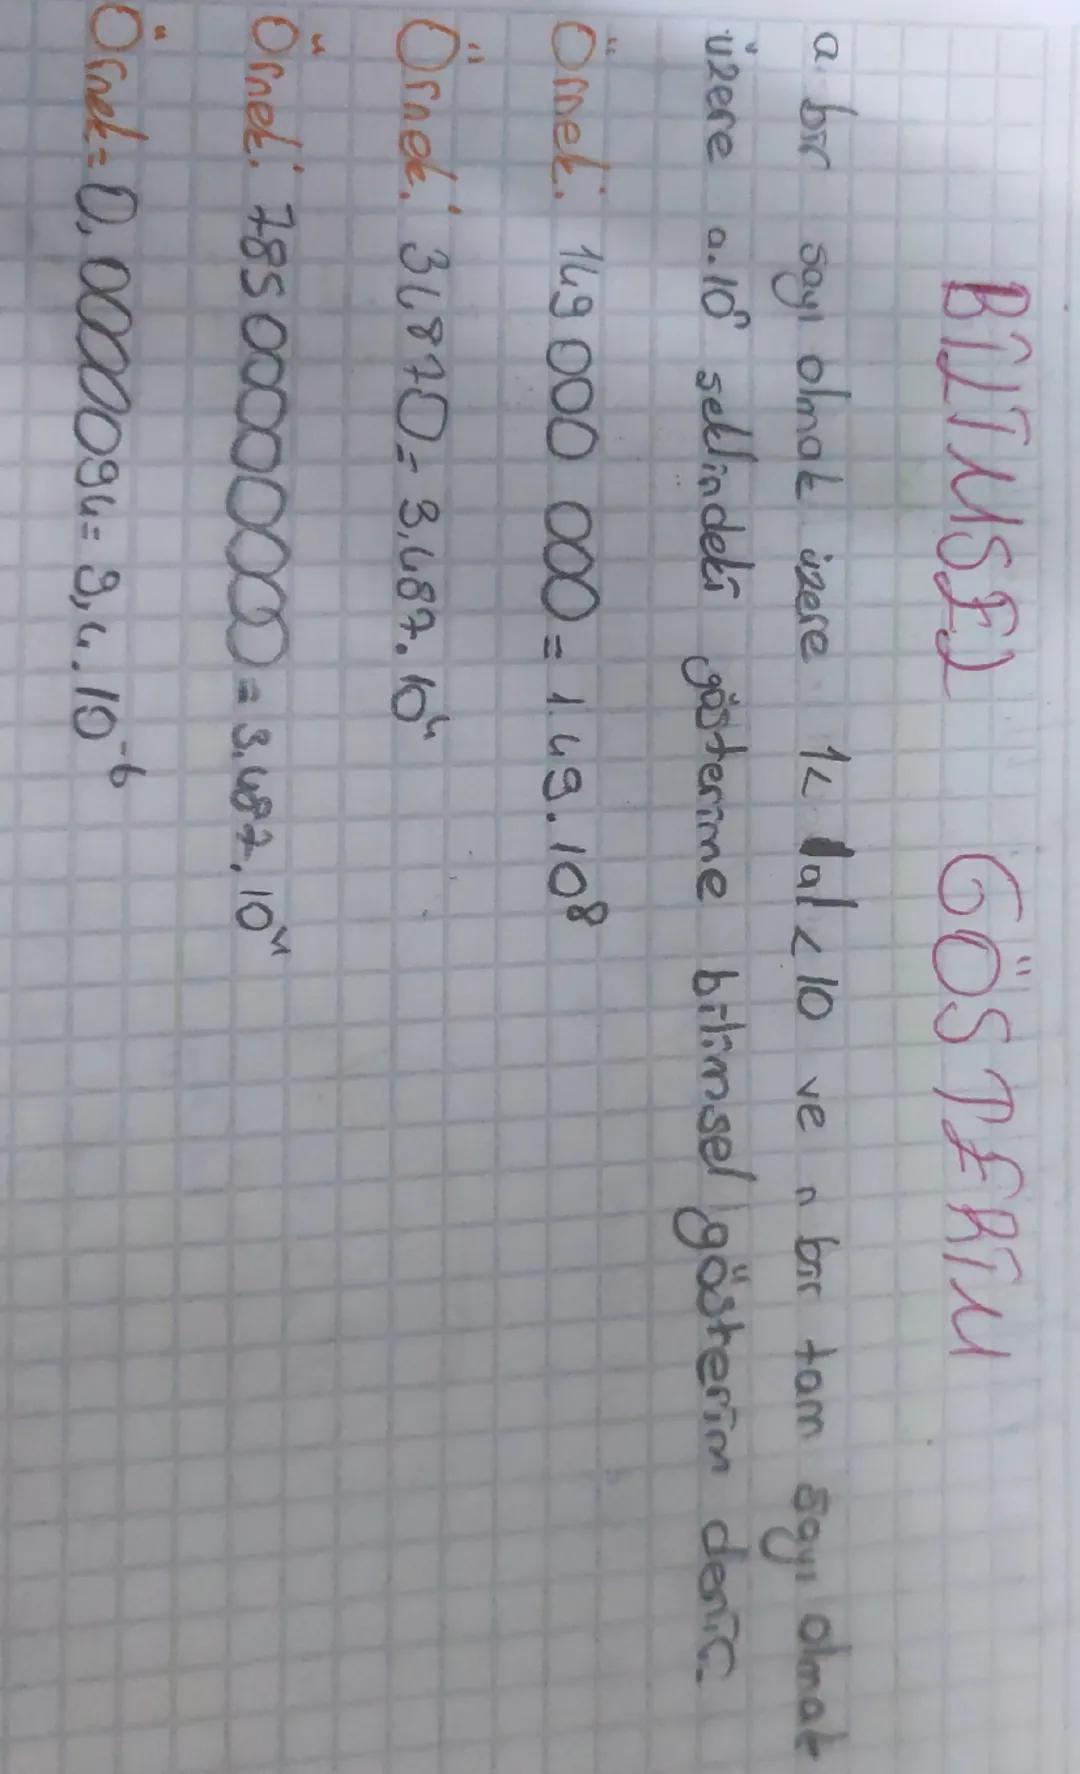 BİLİMSEL GÖSTERİM
a bir sayı olmak üzere 1< |a| < 10 ve n bir tam sayı olmak
üzere a.10ⁿ seklindeki gösterime bilimsel gösterim denir.
Örnek: 149 000 000 = 1.49.10⁸
Örnek: 34,870 = 3,487.10⁴
Örnek: 785
Örnek= = 9,4.10⁻⁶